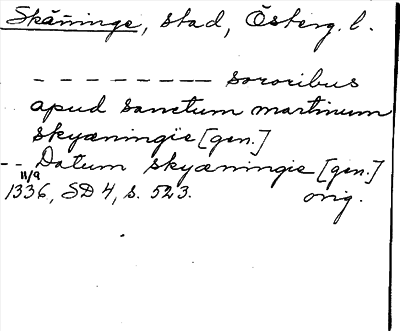 Skäninge, stad, Österg. l.
- - - - - - - - - sororibus
apud sanctum martinum
skyæningie [gen.]
-- Datum skyæningie [gen.]
11/9
1336, SD 4, s. 523. orig.